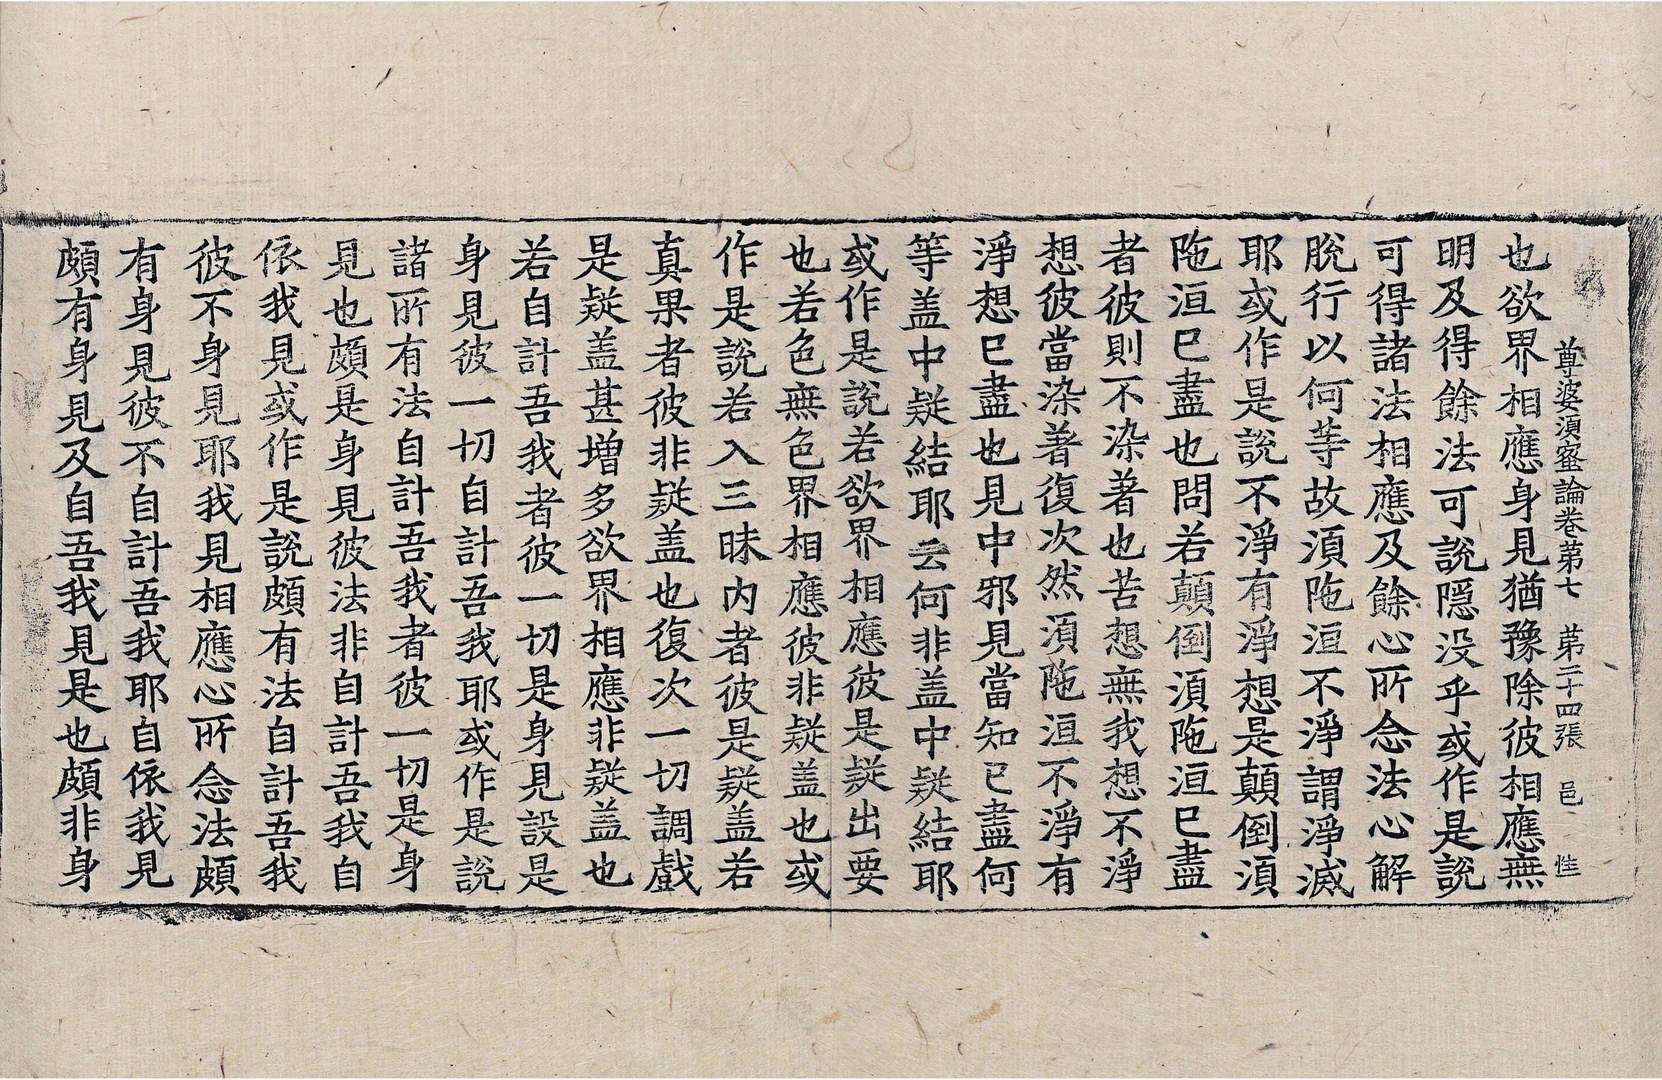 尊婆湏蜜論卷第七　第二十四張　邑　惟
也欲界相應身見猶豫除彼相應無
明及得餘法可說隱没乎或作是說
可得諸法相應及餘心所念法心解
脫行以何等故湏陁洹不淨謂淨滅
耶或作是說不淨有淨想是顛倒湏
陁洹巳盡也問若顛倒湏陁洹巳盡
者彼則不染著也苦想無我想不淨
想彼當染著復次然湏陁洹不淨有
淨想巳盡也見中邪見當知已盡何
等盖中疑結耶云何非盖中疑結耶
或作是說若欲界相應彼是疑出要
也若色無色界相應彼非疑盖也或
作是說若入三昧内者彼是疑盖若
真果者彼非疑盖也復次一切調戲
是疑盖甚增多欲界相應非疑盖也
若自計吾我者彼一切是身見設是
身見彼一切自計吾我耶或作是說
諸所有法自計吾我者彼一切是身
見也頗是身見彼法非自計吾我自
依我見或作是說頗有法自計吾我
彼不身見耶我見相應心所念法頗
有身見彼不自計吾我耶自依我見
頗有身見及自吾我見是也頗非身